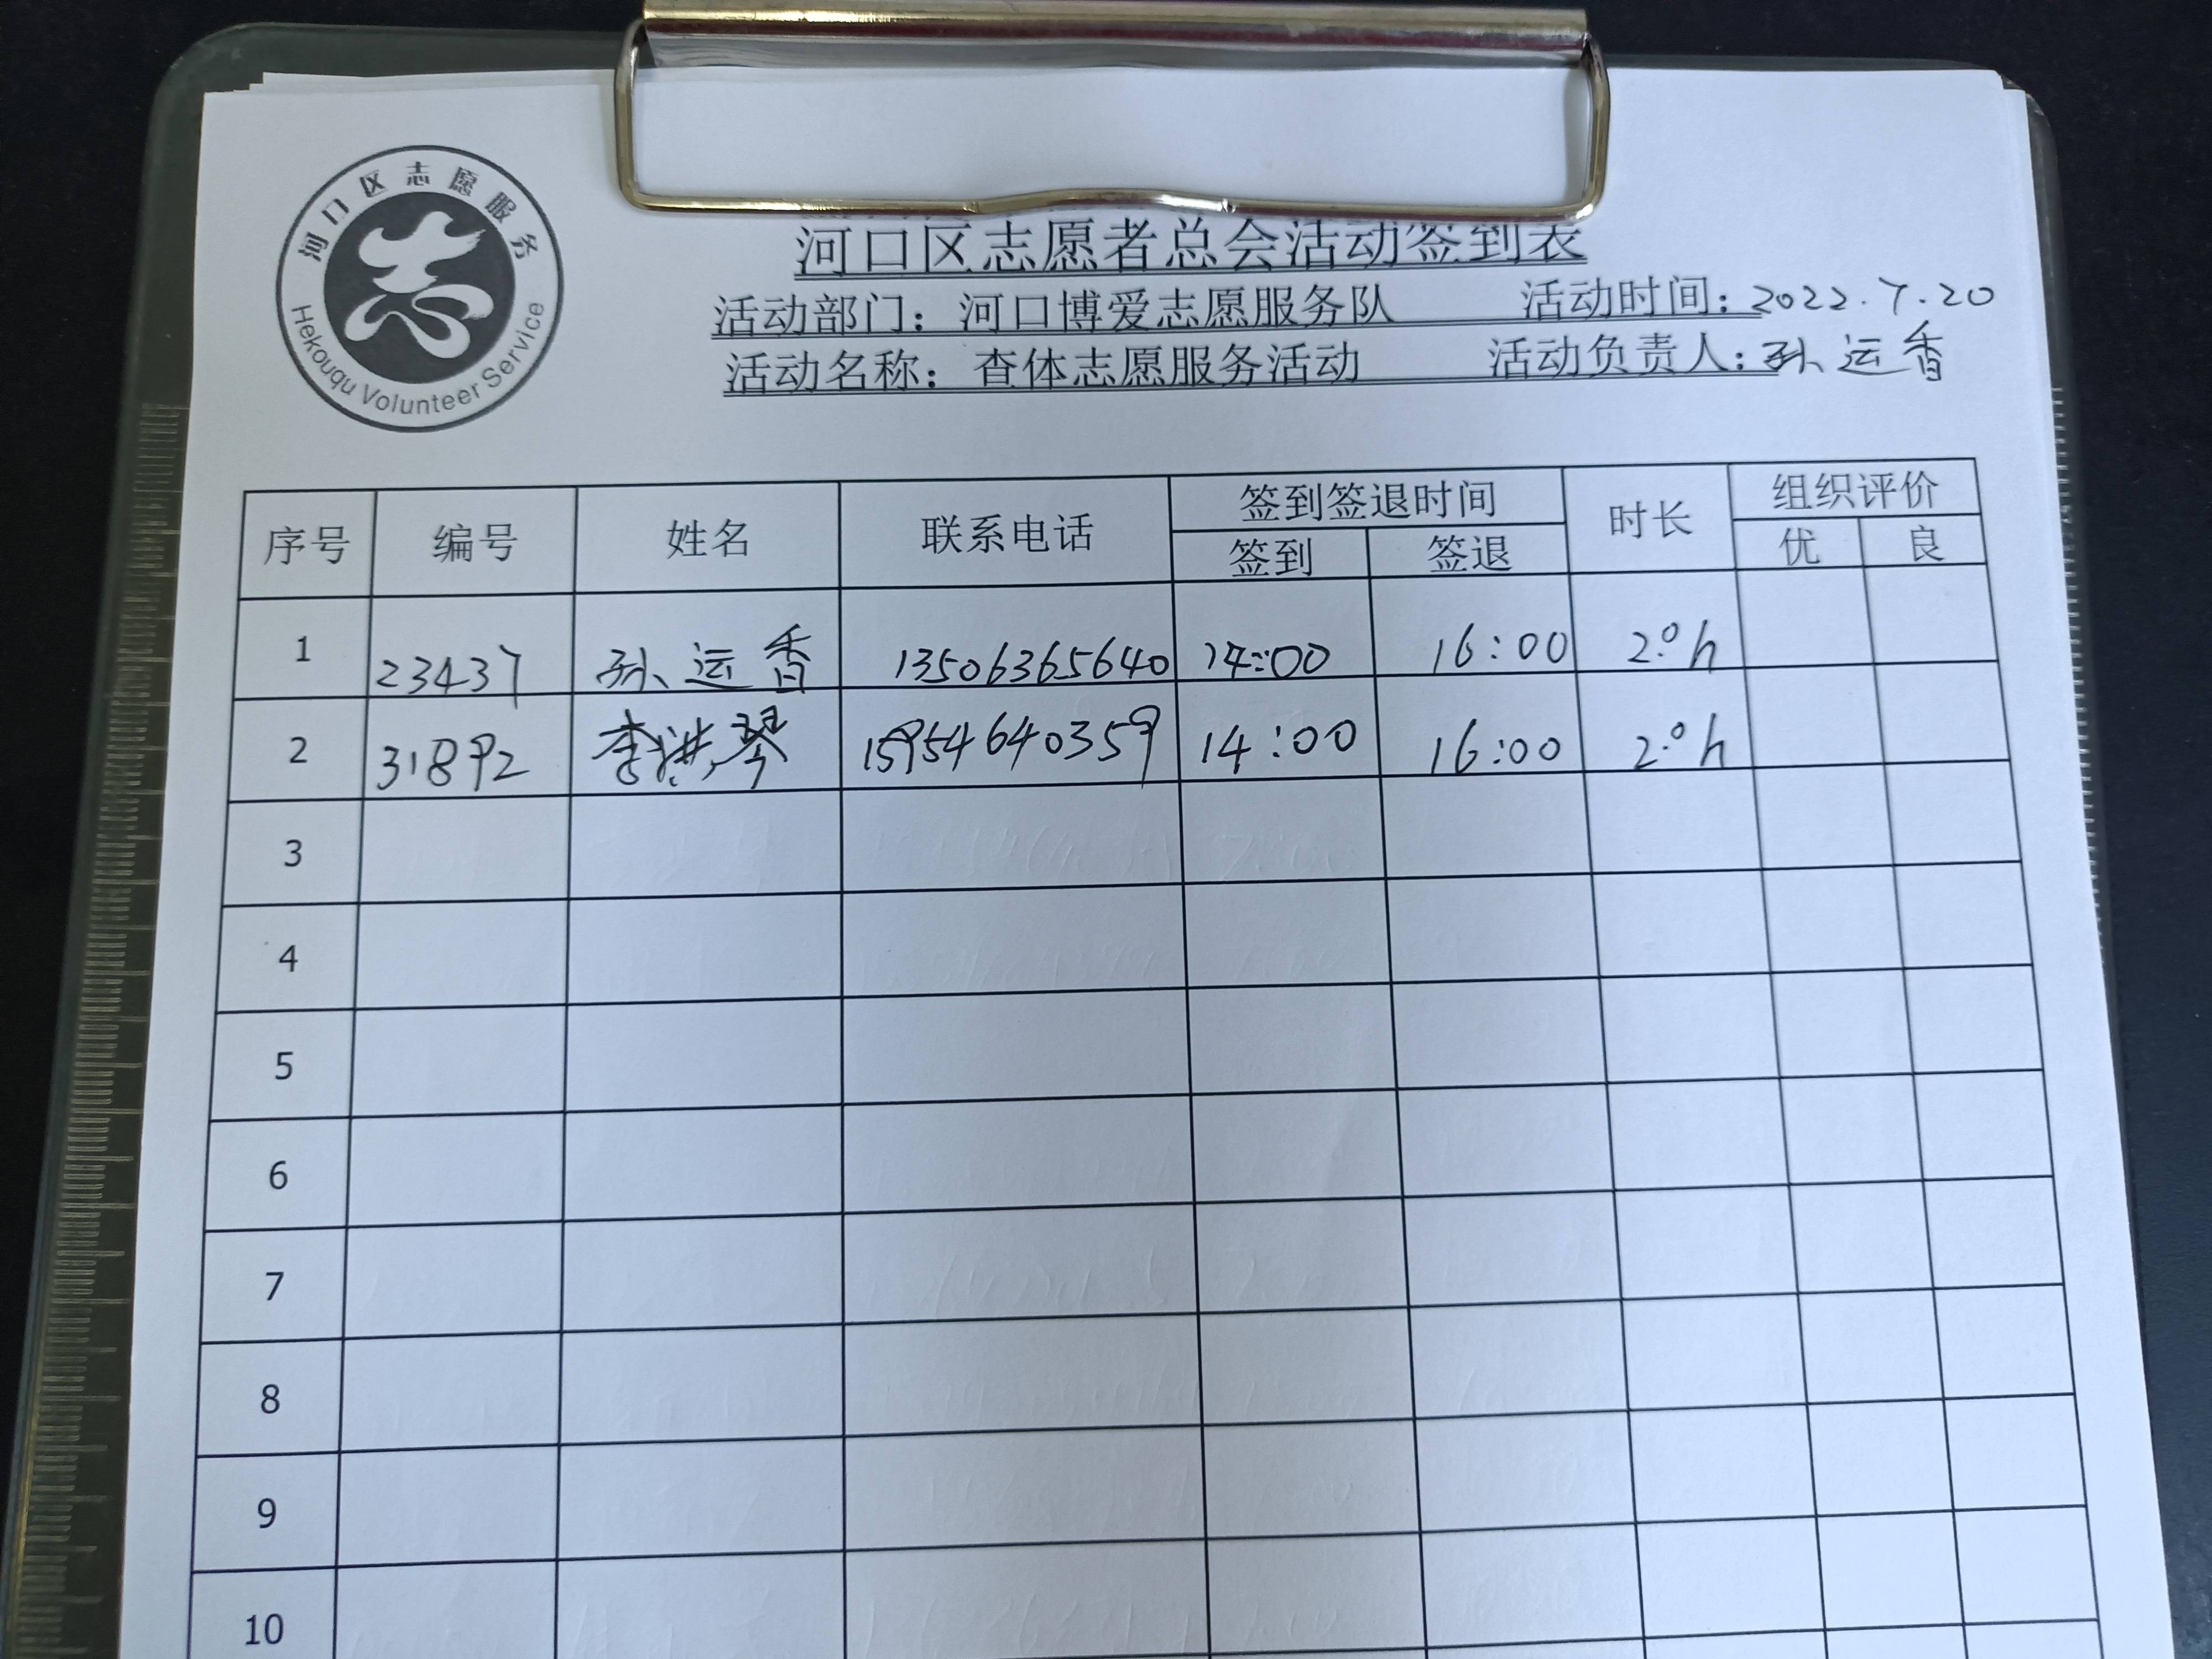 河口区志愿服务
Hekouqu Volunteer Service
河口区志愿者总会活动签到表
活动部门：河口博爱志愿服务队 活动时间：2022.7.20
活动名称：查体志愿服务活动 活动负责人：孙运香
序号 编号 姓名 联系电话 签到签退时间 时长 组织评价
签到 签退 优 良
1 23437 孙运香 13506365640 14:00 16:00 2.0h
2 31892 李洪琴 15954640359 14:00 16:00 2.0h
3
4
5
6
7
8
9
10